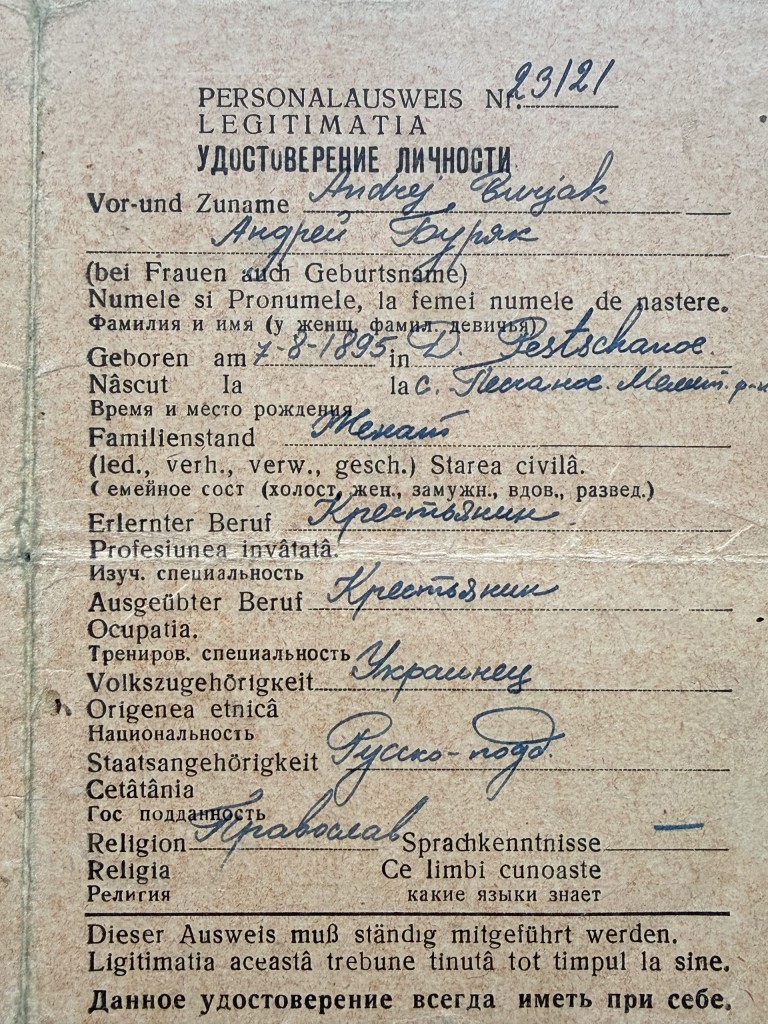 PERSONALAUSWEIS Nr. 23/21
LEGITIMATIA
УДОСТОВЕРЕНИЕ ЛИЧНОСТИ
Vor-und Zuname Andrej Burjak
Андрей Буряк
(bei Frauen auch Geburtsname)
Numele si Pronumele, la femei numele de nastere.
Фамилия и имя (у женщ. фамил. девичья)
Geboren am 7-8-1895 in D. Pestschanoe.
Nâscut la la с. Песчаное. Мелит. р-н
Время и место рождения
Familienstand Женат
(led., verh., verw., gesch.) Starea civilâ.
(емейное сост (холост, жен., замужн., вдов., развед.)
Erlernter Beruf Крестьянин
Profesiunea invâtatâ.
Изуч. специальность
Ausgeübter Beruf Крестьянин
Ocupatia.
Трениров. специальность
Volkszugehörigkeit Украинец
Origenea etnicâ
Национальность
Staatsangehörigkeit Русско-подд.
Cetâtânia
Гос подданность
Religion Православ Sprachkenntnisse —
Religia Ce limbi cunoaste
Религия какие языки знает
Dieser Ausweis muß ständig mitgeführt werden.
Ligitimatia aceastâ trebune tinutâ tot timpul la sine.
Данное удостоверение всегда иметь при себе.